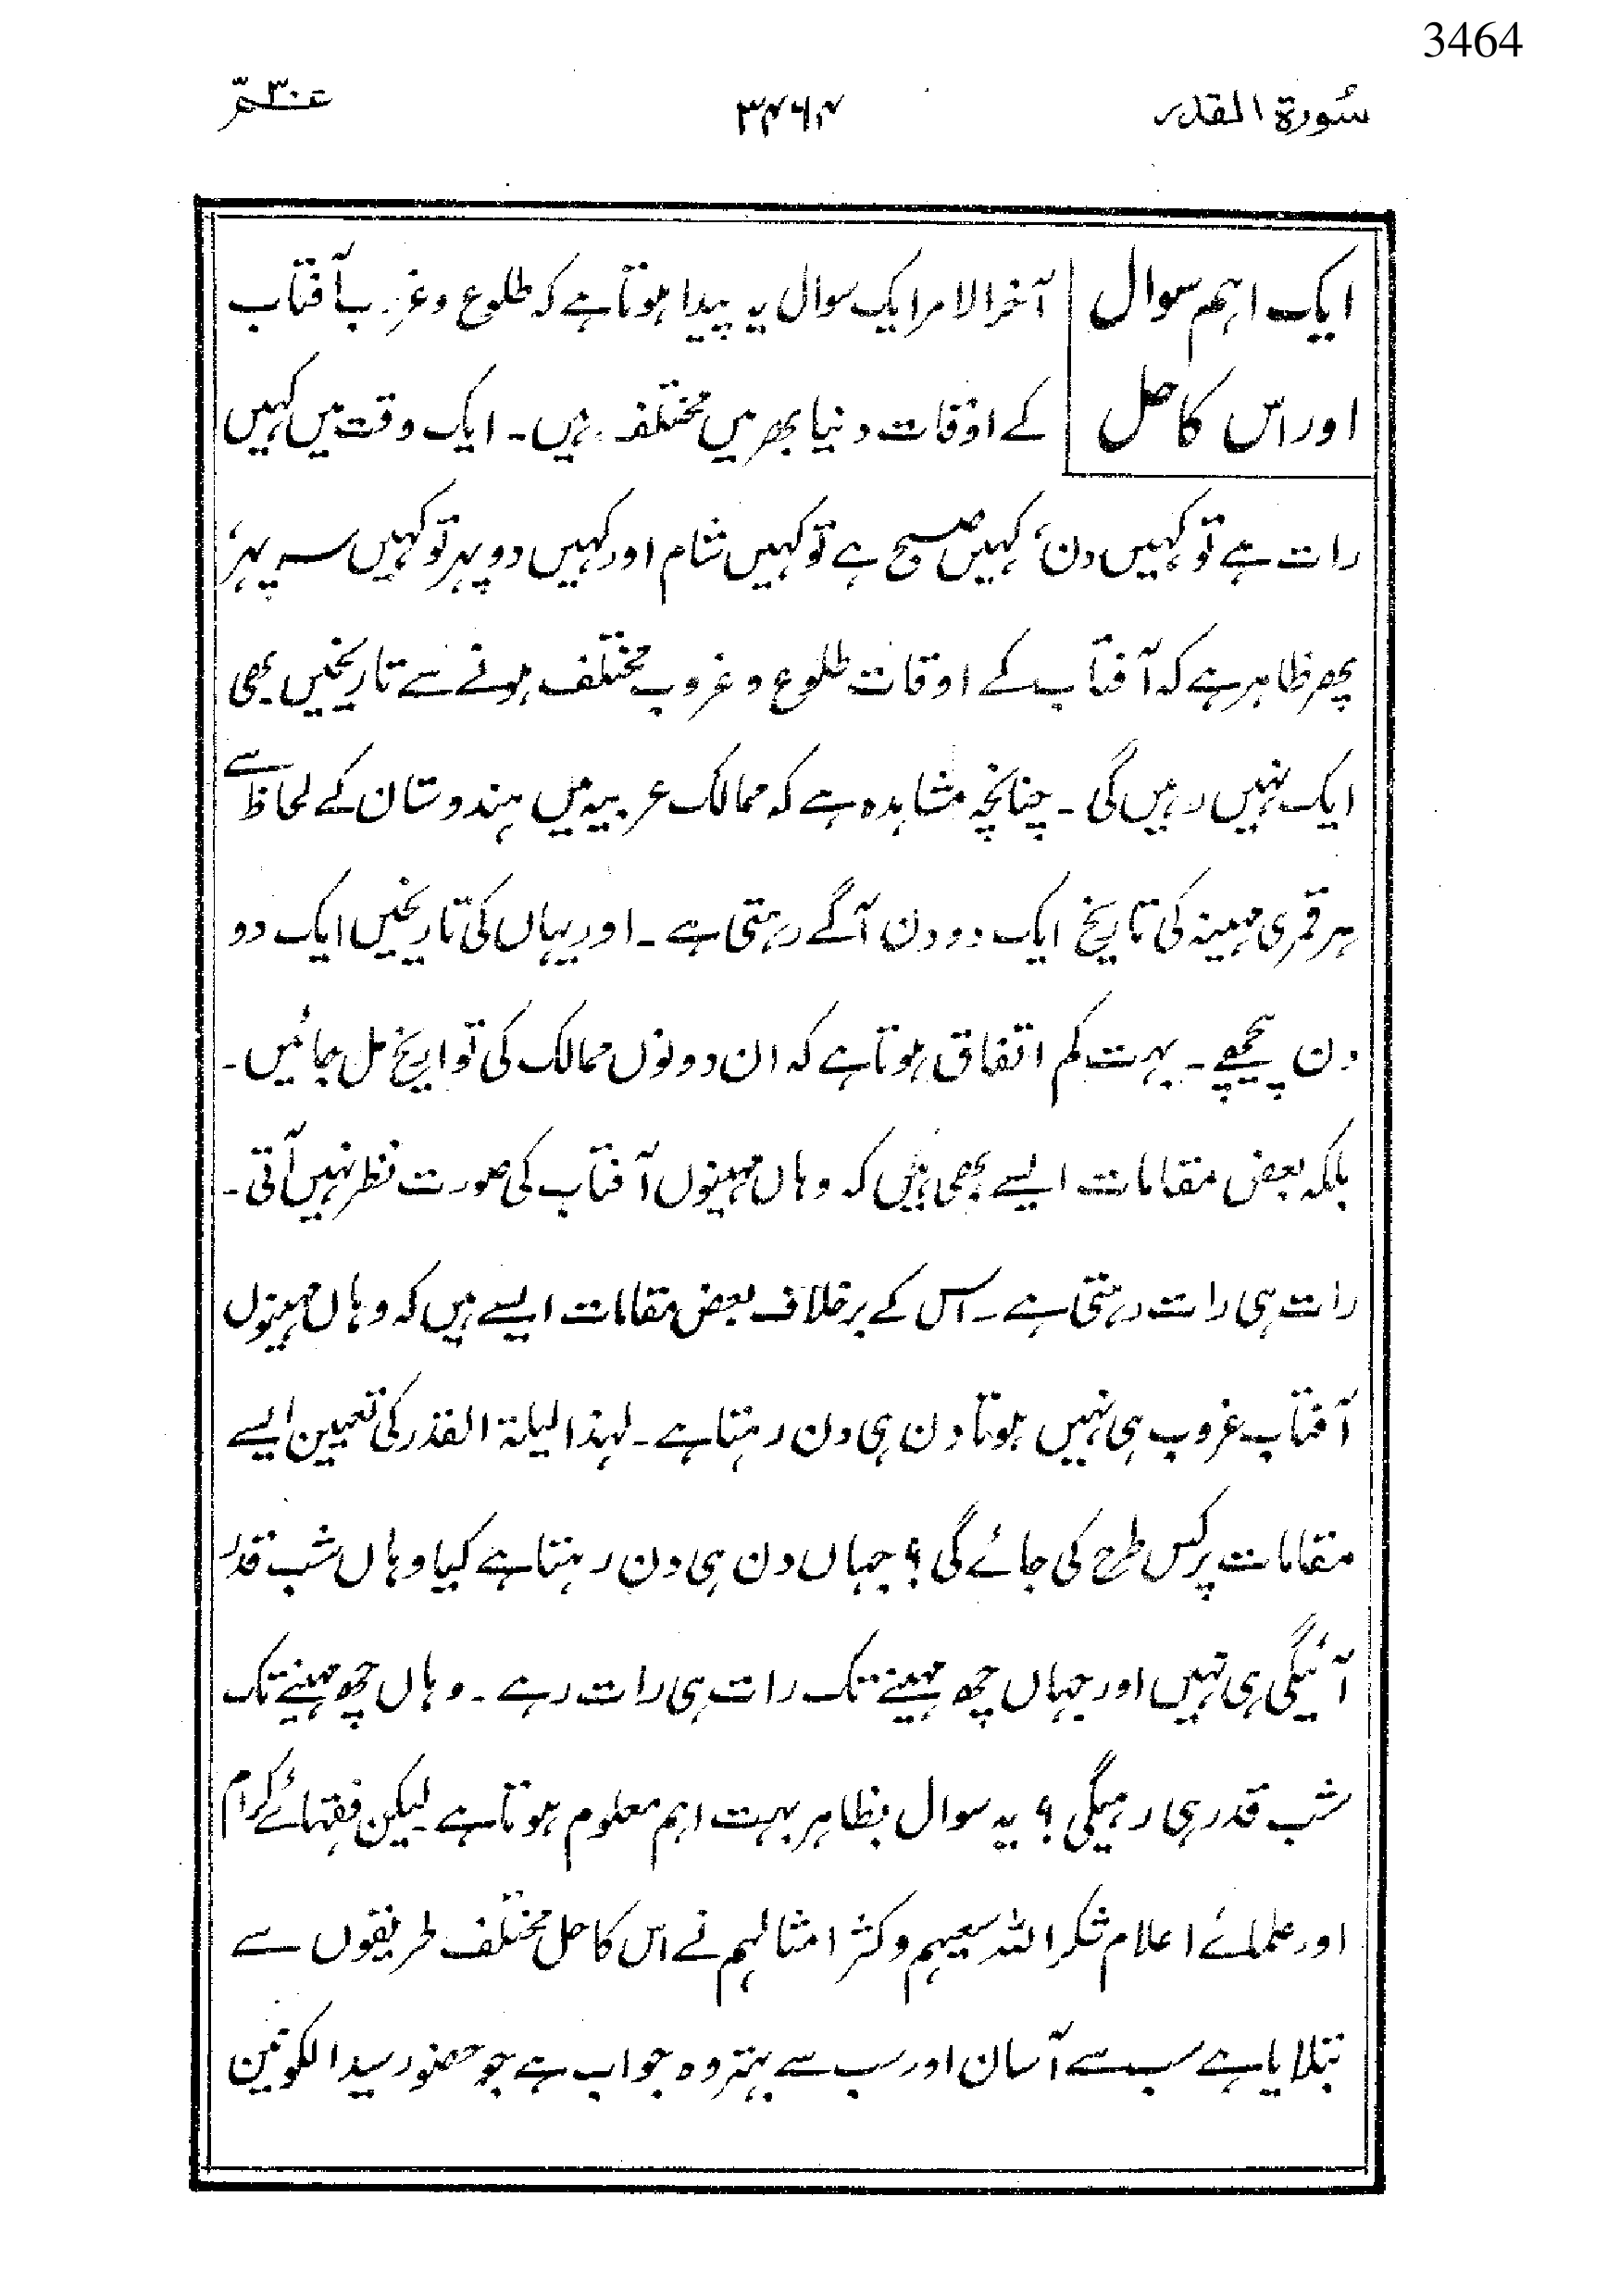 3464
سُورۃ القدر ۳۴۶۴ عم ۳۰
ایک اہم سوال آخر الامر ایک سوال یہ پیدا ہوتا ہے کہ طلوع و غروب آفتاب
اور اس کا حل کے اوقات دنیا بھر میں مختلف ہیں۔ ایک وقت میں کہیں
رات ہے تو کہیں دن، کہیں صبح ہے تو کہیں شام اور کہیں دوپہر تو کہیں سہ پہر،
پھر ظاہر ہے کہ آفتاب کے اوقات طلوع و غروب مختلف ہونے سے تاریخیں بھی
ایک نہیں رہیں گی۔ چنانچہ مشاہدہ ہے کہ ممالک عربیہ میں ہندوستان کے لحاظ سے
ہر قمری مہینہ کی تاریخ ایک دو دن آگے رہتی ہے۔ اور یہاں کی تاریخیں ایک دو
دن پیچھے۔ بہت کم اتفاق ہوتا ہے کہ ان دونوں ممالک کی تواریخ مل جائیں۔
بلکہ بعض مقامات ایسے بھی ہیں کہ وہاں مہینوں آفتاب کی صورت نظر نہیں آتی۔
رات ہی رات رہتی ہے۔ اس کے برخلاف بعض مقامات ایسے ہیں کہ وہاں مہینوں
آفتاب غروب ہی نہیں ہوتا دن ہی دن رہتا ہے۔ لہذا لیلۃ القدر کی تعیین ایسے
مقامات پر کس طرح کی جائے گی؟ جہاں دن ہی دن رہتا ہے کیا وہاں شب قدر
آئیگی ہی نہیں اور جہاں چھ مہینے تک رات ہی رات رہے۔ وہاں چھ مہینے تک
شب قدر ہی رہیگی؟ یہ سوال بظاہر بہت اہم معلوم ہوتا ہے لیکن فقہائے کرام
اور علمائے اعلام شکر اللہ سعیہم و کثر امثالہم نے اس کا حل مختلف طریقوں سے
بتلایا ہے سب سے آسان اور سب سے بہتر وہ جواب ہے جو حضور سید الکونین